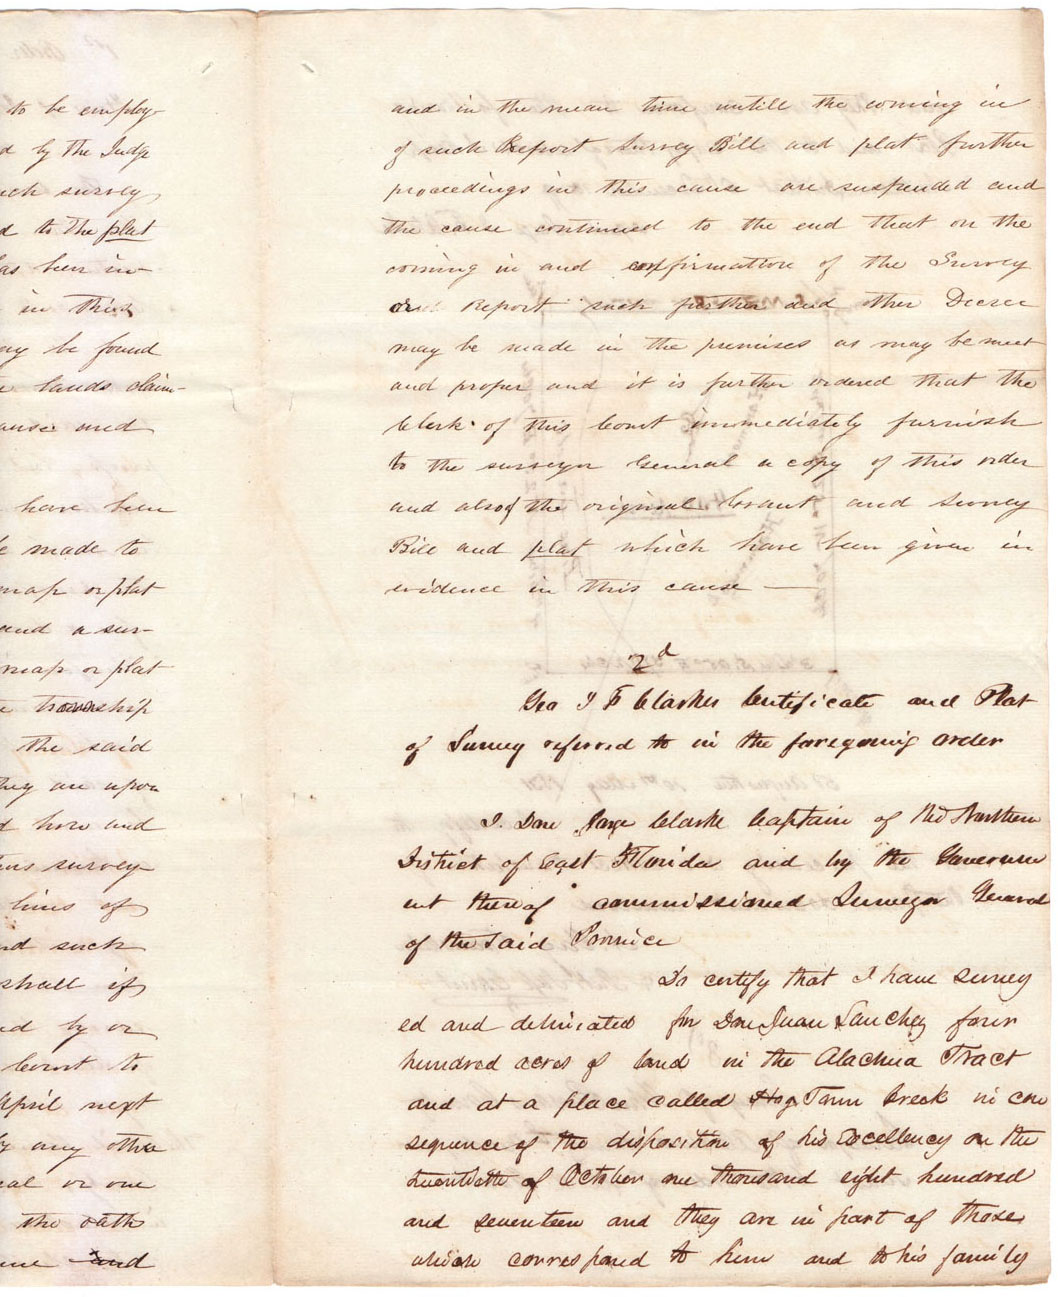 to be employ-
d by the Judge
uch survey
d to the plat
as been in-
in this
ay be found
e lands claim-
ause and
have been
be made to
map or plat
and a sur-
map or plat
e township
the said
hey are upon
d how and
ous survey
lines of
nd such
shall if
ed by or
Court to
April next
by any othe
al or one
the oath
me and
and in the mean time untill the coming in
of such Report Survey Bill and plat further
proceedings in this cause are suspended and
the cause continued to the end that on the
coming in and confirmation of the Survey
and Report such further and other Decree
may be made in the premises as may be meet
and proper and it is further ordered that the
Clerk of this Court immediately furnish
to the surveyor General a copy of this order
and also of the original Grant and Survey
Bill and plat which have been given in
evidence in this cause —
2d
Geo I F Clarkes Certificate and Plat
of Survey referred to in the foregoing order
I. Don Jorge Clarke Captain of the Northern
District of East Florida and by the Governm
ent thereof commissioned Surveyor General
of the Said Province
Do certify that I have survey
ed and deliniated for Don Juan Sanchez four
hundred acres of land in the Alachua Tract
and at a place called Hog Town Creek in con
sequence of the disposition of his Excellency on the
twentieth of October one thousand eight hundred
and seventeen and they are in part of those
which correspond to him and to his family